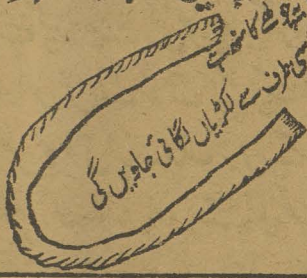 چولھے کا منھ
اسی طرف سے لکڑیاں لگائی جاویں گی